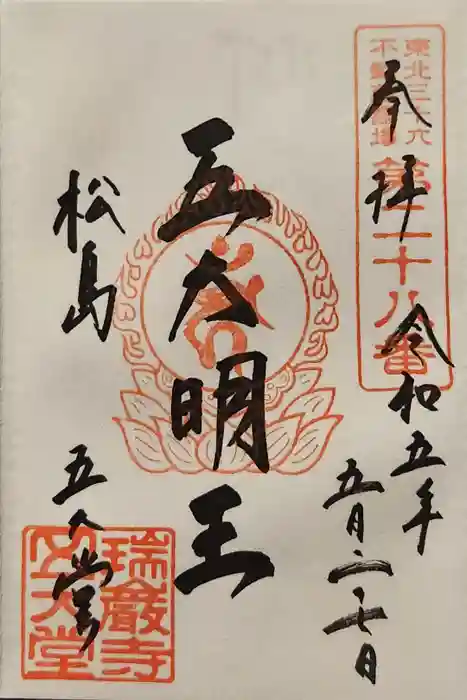 東北三十六
不動尊霊場
第二十八番
奉拝
令和五年
五月二十七日
五大明王
松島
五大堂
瑞巖寺
五大堂